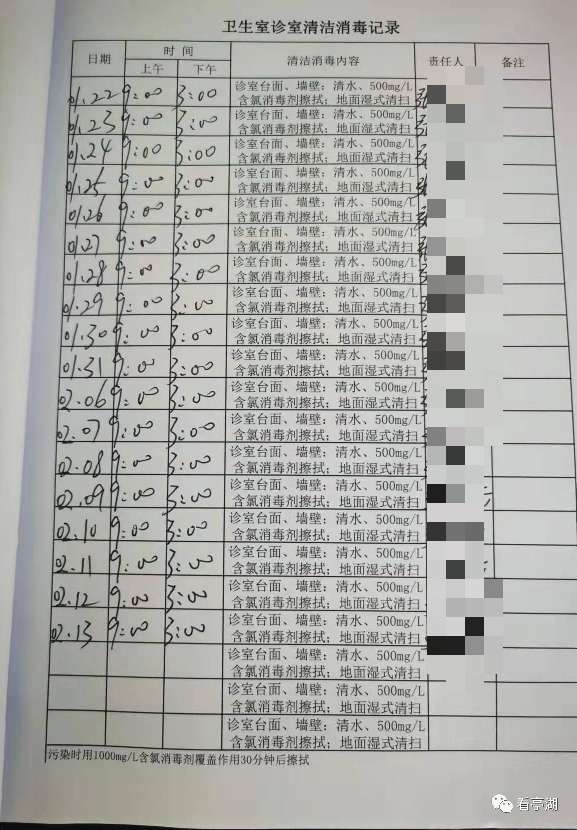 卫生室诊室清洁消毒记录
日期 时间 清洁消毒内容 责任人 备注
上午 下午
01.22 9:00 3:00 诊室台面、墙壁：清水、500mg/L
含氯消毒剂擦拭；地面湿式清扫
01.23 9:00 3:00 诊室台面、墙壁：清水、500mg/L
含氯消毒剂擦拭；地面湿式清扫
01.24 9:00 3:00 诊室台面、墙壁：清水、500mg/L
含氯消毒剂擦拭；地面湿式清扫
01.25 9:00 3:00 诊室台面、墙壁：清水、500mg/L
含氯消毒剂擦拭；地面湿式清扫
01.26 9:00 3:00 诊室台面、墙壁：清水、500mg/L
含氯消毒剂擦拭；地面湿式清扫
01.27 9:00 3:00 诊室台面、墙壁：清水、500mg/L
含氯消毒剂擦拭；地面湿式清扫
01.28 9:00 3:00 诊室台面、墙壁：清水、500mg/L
含氯消毒剂擦拭；地面湿式清扫
01.29 9:00 3:00 诊室台面、墙壁：清水、500mg/L
含氯消毒剂擦拭；地面湿式清扫
01.30 9:00 3:00 诊室台面、墙壁：清水、500mg/L
含氯消毒剂擦拭；地面湿式清扫
01.31 9:00 3:00 诊室台面、墙壁：清水、500mg/L
含氯消毒剂擦拭；地面湿式清扫
02.06 9:00 3:00 诊室台面、墙壁：清水、500mg/L
含氯消毒剂擦拭；地面湿式清扫
02.07 9:00 3:00 诊室台面、墙壁：清水、500mg/L
含氯消毒剂擦拭；地面湿式清扫
02.08 9:00 3:00 诊室台面、墙壁：清水、500mg/L
含氯消毒剂擦拭；地面湿式清扫
02.09 9:00 3:00 诊室台面、墙壁：清水、500mg/L
含氯消毒剂擦拭；地面湿式清扫
02.10 9:00 3:00 诊室台面、墙壁：清水、500mg/L
含氯消毒剂擦拭；地面湿式清扫
02.11 9:00 3:00 诊室台面、墙壁：清水、500mg/L
含氯消毒剂擦拭；地面湿式清扫
02.12 9:00 3:00 诊室台面、墙壁：清水、500mg/L
含氯消毒剂擦拭；地面湿式清扫
02.13 9:00 3:00 诊室台面、墙壁：清水、500mg/L
含氯消毒剂擦拭；地面湿式清扫
诊室台面、墙壁：清水、500mg/L
含氯消毒剂擦拭；地面湿式清扫
诊室台面、墙壁：清水、500mg/L
含氯消毒剂擦拭；地面湿式清扫
诊室台面、墙壁：清水、500mg/L
含氯消毒剂擦拭；地面湿式清扫
污染时用1000mg/L含氯消毒剂覆盖作用30分钟后擦拭
看亭湖